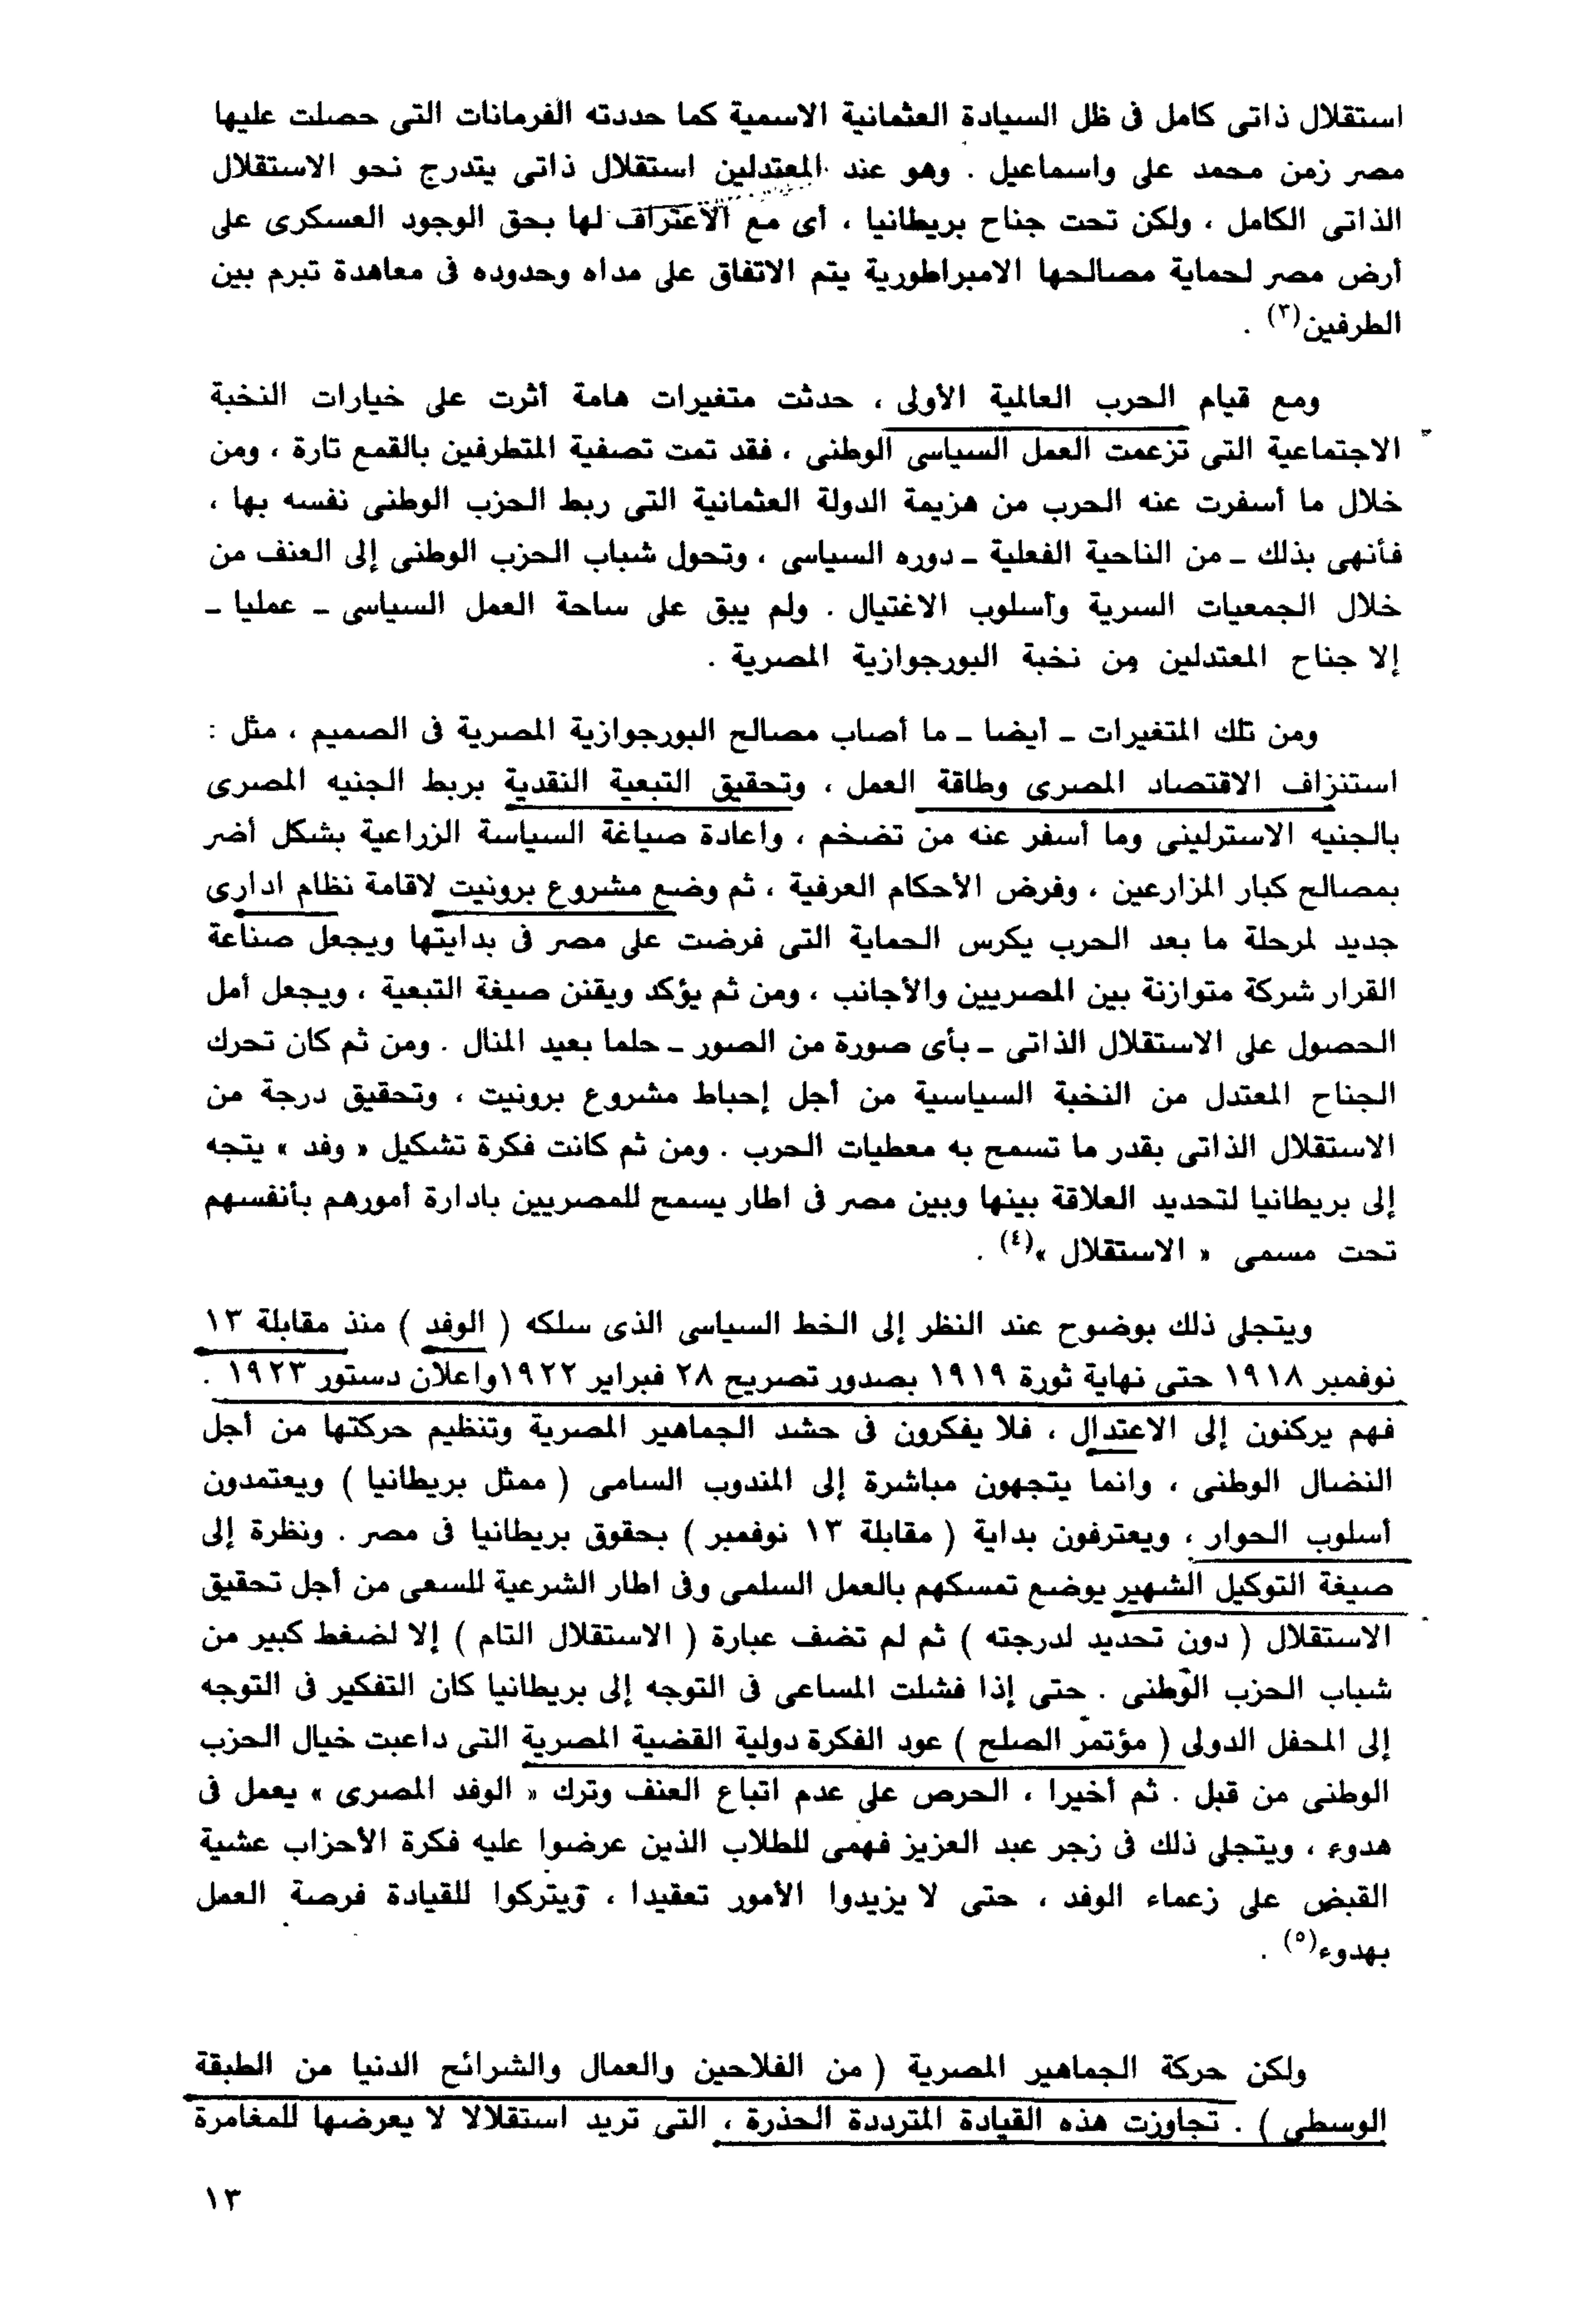 استقلال ذاتى كامل فى ظل السيادة العثمانية الاسمية كما حددته الفرمانات التى حصلت عليها
مصر زمن محمد على واسماعيل . وهو عند المعتدلين استقلال ذاتى يتدرج نحو الاستقلال
الذاتى الكامل ، ولكن تحت جناح بريطانيا ، أى مع الاعتراف لها بحق الوجود العسكرى على
أرض مصر لحماية مصالحها الامبراطورية يتم الاتفاق على مداه وحدوده فى معاهدة تبرم بين
الطرفين(٣) .
ومع قيام الحرب العالمية الأولى ، حدثت متغيرات هامة أثرت على خيارات النخبة
الاجتماعية التى تزعمت العمل السياسى الوطنى ، فقد تمت تصفية المتطرفين بالقمع تارة ، ومن
خلال ما أسفرت عنه الحرب من هزيمة الدولة العثمانية التى ربط الحزب الوطنى نفسه بها ،
فأنهى بذلك ـ من الناحية الفعلية ـ دوره السياسى ، وتحول شباب الحزب الوطنى إلى العنف من
خلال الجمعيات السرية وأسلوب الاغتيال . ولم يبق على ساحة العمل السياسى ـ عمليا ـ
إلا جناح المعتدلين من نخبة البورجوازية المصرية .
ومن تلك المتغيرات ـ أيضا ـ ما أصاب مصالح البورجوازية المصرية فى الصميم ، مثل :
استنزاف الاقتصاد المصرى وطاقة العمل ، وتحقيق التبعية النقدية بربط الجنيه المصرى
بالجنيه الاسترلينى وما أسفر عنه من تضخم ، واعادة صياغة السياسة الزراعية بشكل أضر
بمصالح كبار المزارعين ، وفرض الأحكام العرفية ، ثم وضع مشروع برونيت لاقامة نظام ادارى
جديد لمرحلة ما بعد الحرب يكرس الحماية التى فرضت على مصر فى بدايتها ويجعل صناعة
القرار شركة متوازنة بين المصريين والأجانب ، ومن ثم يؤكد ويقنن صيغة التبعية ، ويجعل أمل
الحصول على الاستقلال الذاتى ـ بأى صورة من الصور ـ حلما بعيد المنال . ومن ثم كان تحرك
الجناح المعتدل من النخبة السياسية من أجل إحباط مشروع برونيت ، وتحقيق درجة من
الاستقلال الذاتى بقدر ما تسمح به معطيات الحرب . ومن ثم كانت فكرة تشكيل « وفد » يتجه
إلى بريطانيا لتحديد العلاقة بينها وبين مصر فى اطار يسمح للمصريين بادارة أمورهم بأنفسهم
تحت مسمى « الاستقلال »(٤) .
ويتجلى ذلك بوضوح عند النظر إلى الخط السياسى الذى سلكه ( الوفد ) منذ مقابلة ١٣
نوفمبر ١٩١٨ حتى نهاية ثورة ١٩١٩ بصدور تصريح ٢٨ فبراير ١٩٢٢واعلان دستور ١٩٢٣ .
فهم يركنون إلى الاعتدال ، فلا يفكرون فى حشد الجماهير المصرية وتنظيم حركتها من أجل
النضال الوطنى ، وانما يتجهون مباشرة إلى المندوب السامى ( ممثل بريطانيا ) ويعتمدون
أسلوب الحوار ، ويعترفون بداية ( مقابلة ١٣ نوفمبر ) بحقوق بريطانيا فى مصر . ونظرة إلى
صيغة التوكيل الشهير يوضع تمسكهم بالعمل السلمى وفى اطار الشرعية للسعى من أجل تحقيق
الاستقلال ( دون تحديد لدرجته ) ثم لم تضف عبارة ( الاستقلال التام ) إلا لضغط كبير من
شباب الحزب الوطنى . حتى إذا فشلت المساعى فى التوجه إلى بريطانيا كان التفكير فى التوجه
إلى المحفل الدولى ( مؤتمر الصلح ) عود الفكرة دولية القضية المصرية التى داعبت خيال الحزب
الوطنى من قبل . ثم أخيرا ، الحرص على عدم اتباع العنف وترك « الوفد المصرى » يعمل فى
هدوء ، ويتجلى ذلك فى زجر عبد العزيز فهمى للطلاب الذين عرضوا عليه فكرة الأحزاب عشية
القبض على زعماء الوفد ، حتى لا يزيدوا الأمور تعقيدا ، ويتركوا للقيادة فرصة العمل
بهدوء(٥) .
ولكن حركة الجماهير المصرية ( من الفلاحين والعمال والشرائح الدنيا من الطبقة
الوسطى ) . تجاوزت هذه القيادة المترددة الحذرة ، التى تريد استقلالا لا يعرضها للمغامرة
١٣